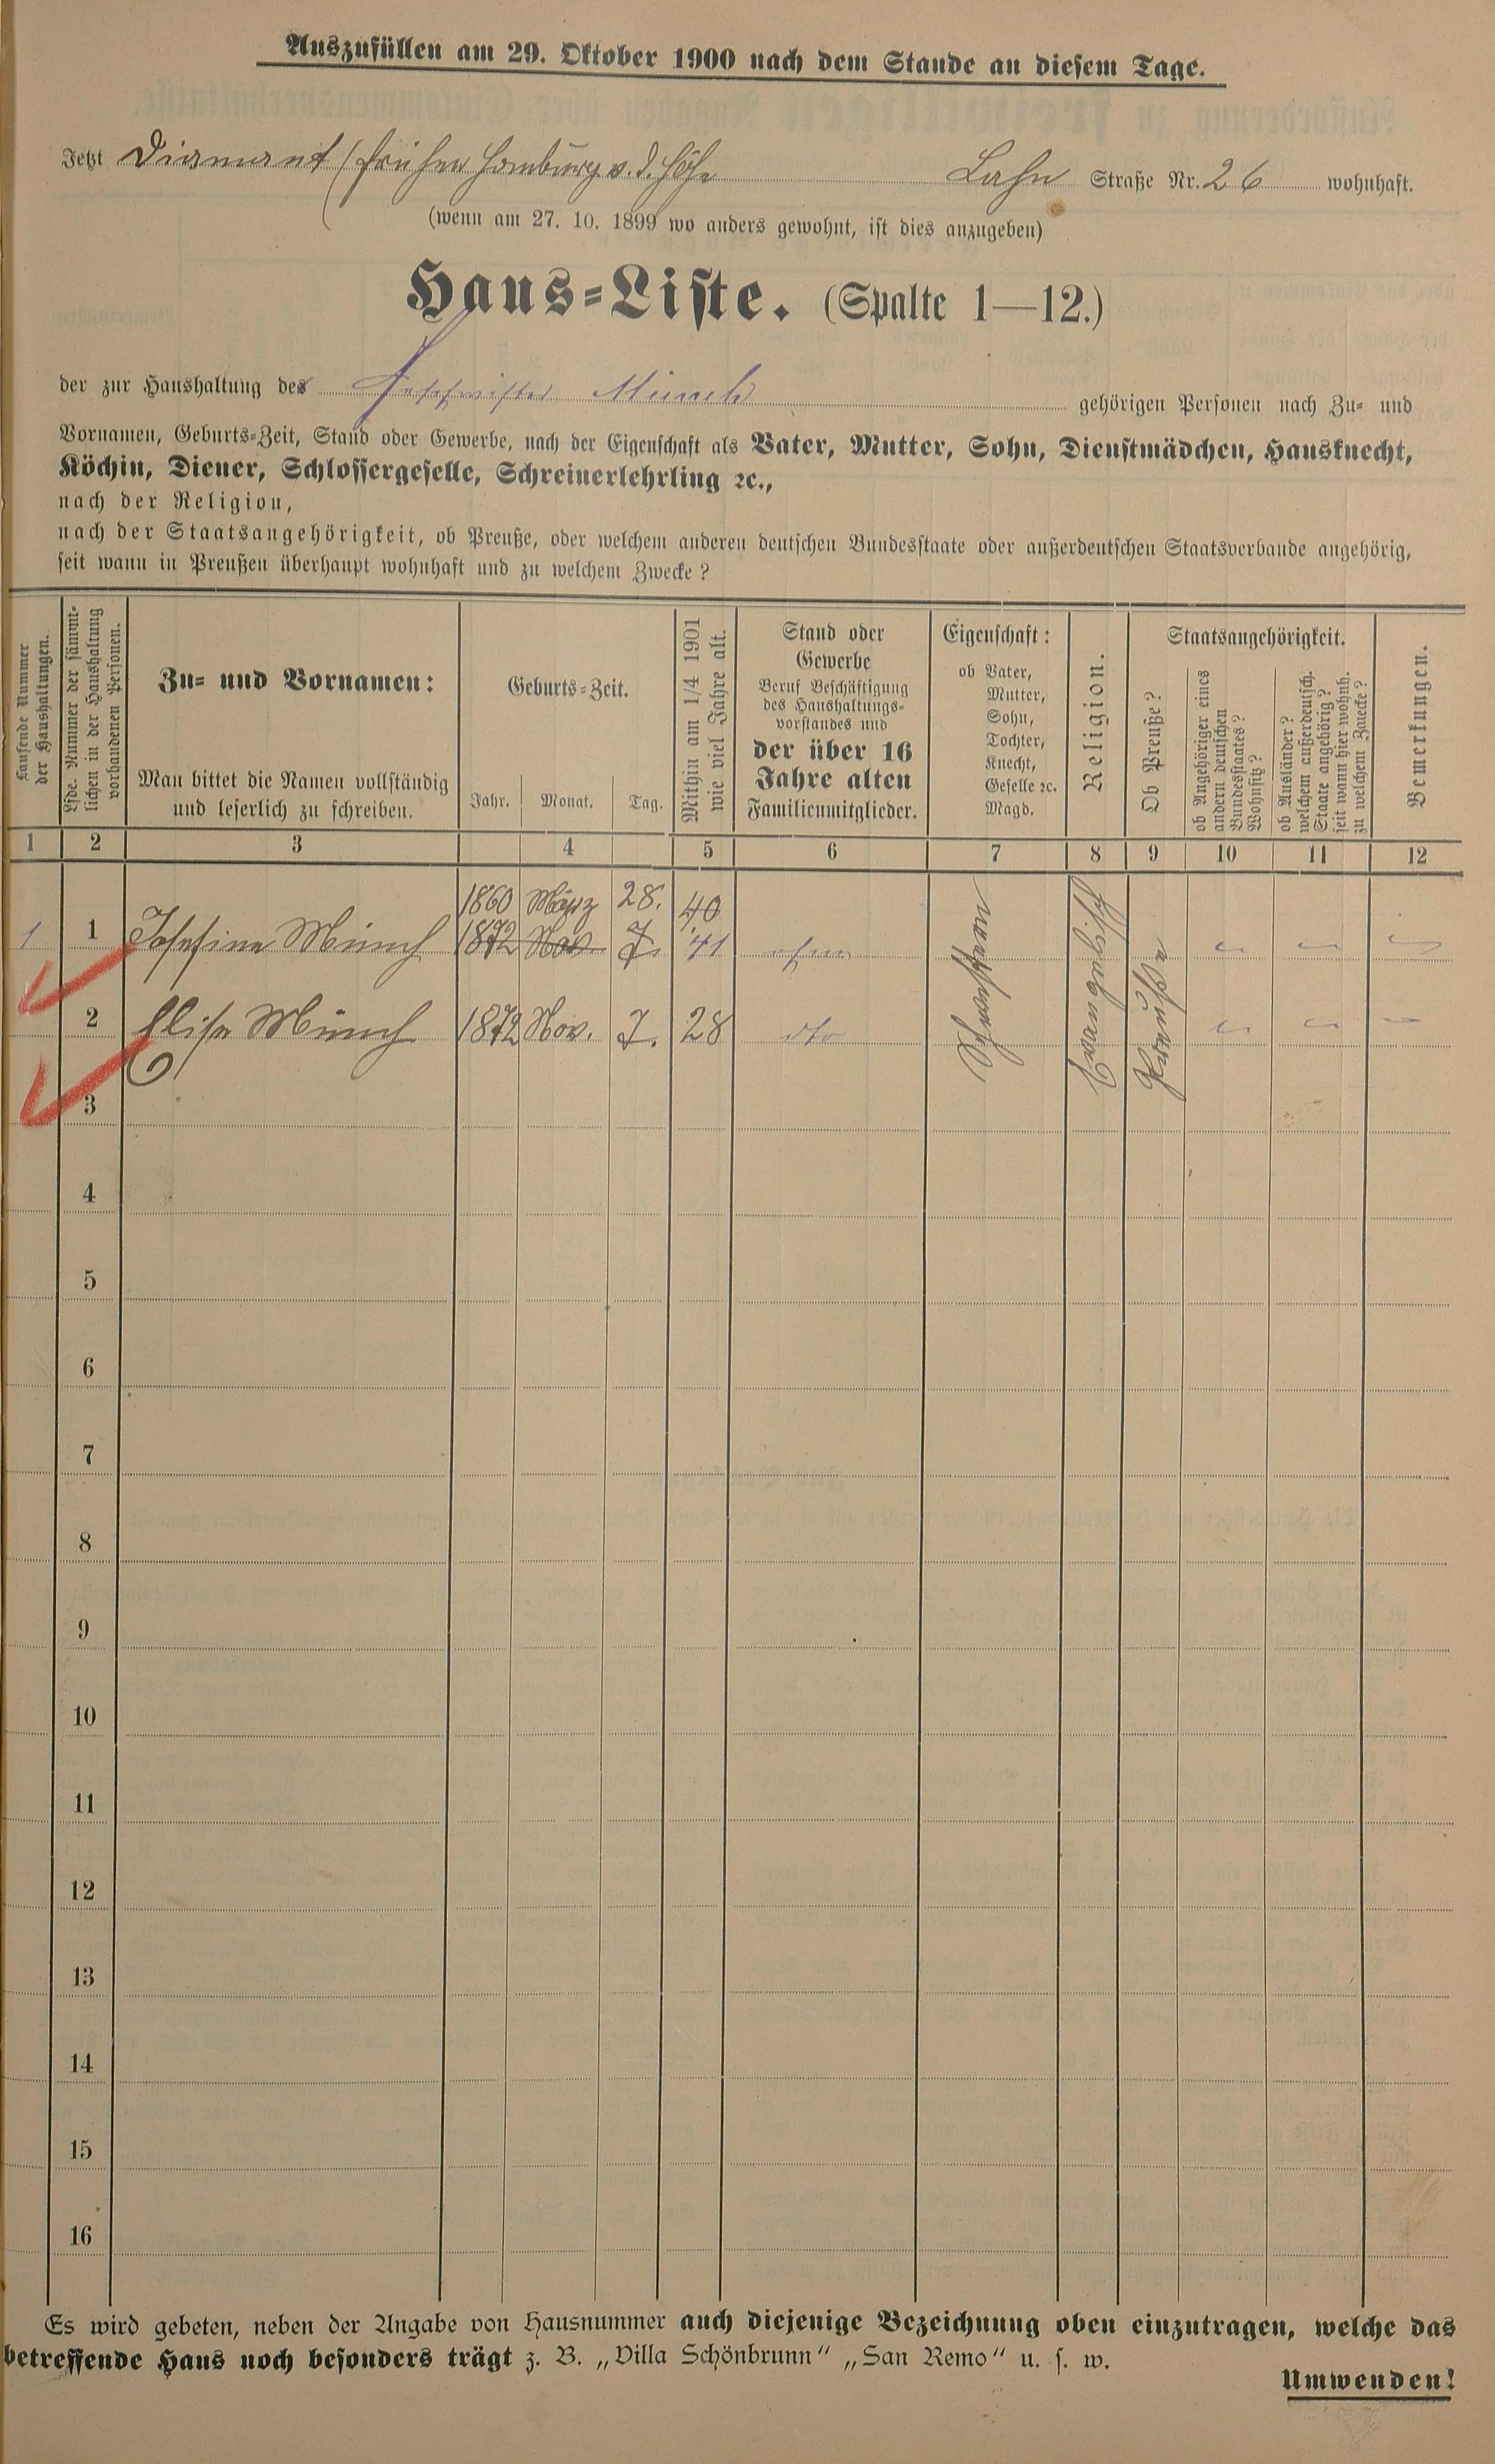 Auszufüllen am 29. Oktober 1900 nach dem Stande an diesem Tage.
Jetzt Diamant (früher Homburg v. d. Höhe Lahn Straße Nr. 26 wohnhaft.
(wenn am 27. 10. 1899 wo anders gewohnt, ist dies anzugeben)
Haus-Liste. (Spalte 1—12.)
der zur Haushaltung des Geschwister Münch gehörigen Personen nach Zu- und
Vornamen, Geburts-Zeit, Stand oder Gewerbe, nach der Eigenschaft als Vater, Mutter, Sohn, Dienstmädchen, Hausknecht,
Köchin, Diener, Schlossergeselle, Schreinerlehrling ꝛc.,
nach der Religion,
nach der Staatsangehörigkeit, ob Preuße, oder welchem anderen deutschen Bundesstaate oder außerdeutschen Staatsverbande angehörig,
seit wann in Preußen überhaupt wohnhaft und zu welchem Zwecke?
Laufende Nummer
der Haushaltungen.
Lfde. Nummer der sämmt-
lichen in der Haushaltung
vorhandenen Personen.
Zu- und Vornamen:
Man bittet die Namen vollständig
und leserlich zu schreiben.
Geburts-Zeit.
Jahr. Monat. Tag.
Mithin am 1/4 1901
wie viel Jahre alt.
Stand oder
Gewerbe
Beruf Beschäftigung
des Haushaltungs-
vorstandes und
der über 16
Jahre alten
Familienmitglieder.
Eigenschaft:
ob Vater,
Mutter,
Sohn,
Tochter,
Knecht,
Geselle ꝛc.
Magd.
Religion.
Staatsangehörigkeit.
Ob Preuße?
ob Angehöriger eines
andern deutschen
Bundesstaates?
Wohnsitz?
ob Ausländer?
welchem außerdeutsch.
Staate angehörig?
seit wann hier wohnh.
zu welchem Zwecke?
Bemerkungen.
1 2 3 4 5 6 7 8 9 10 11 12
1860 März 28. 40
1 1 Josefine Münch 1872 Nov. 7. 41 ohne
2 Elise Münch 1872 Nov. 7. 28 dto
Schwestern
Preuße
3
4
5
6
7
8
9
10
11
12
13
14
15
16
Es wird gebeten, neben der Angabe von Hausnummer auch diejenige Bezeichnung oben einzutragen, welche das
betreffende Haus noch besonders trägt z. B. „Villa Schönbrunn“ „San Remo“ u. s. w.
Umwenden!